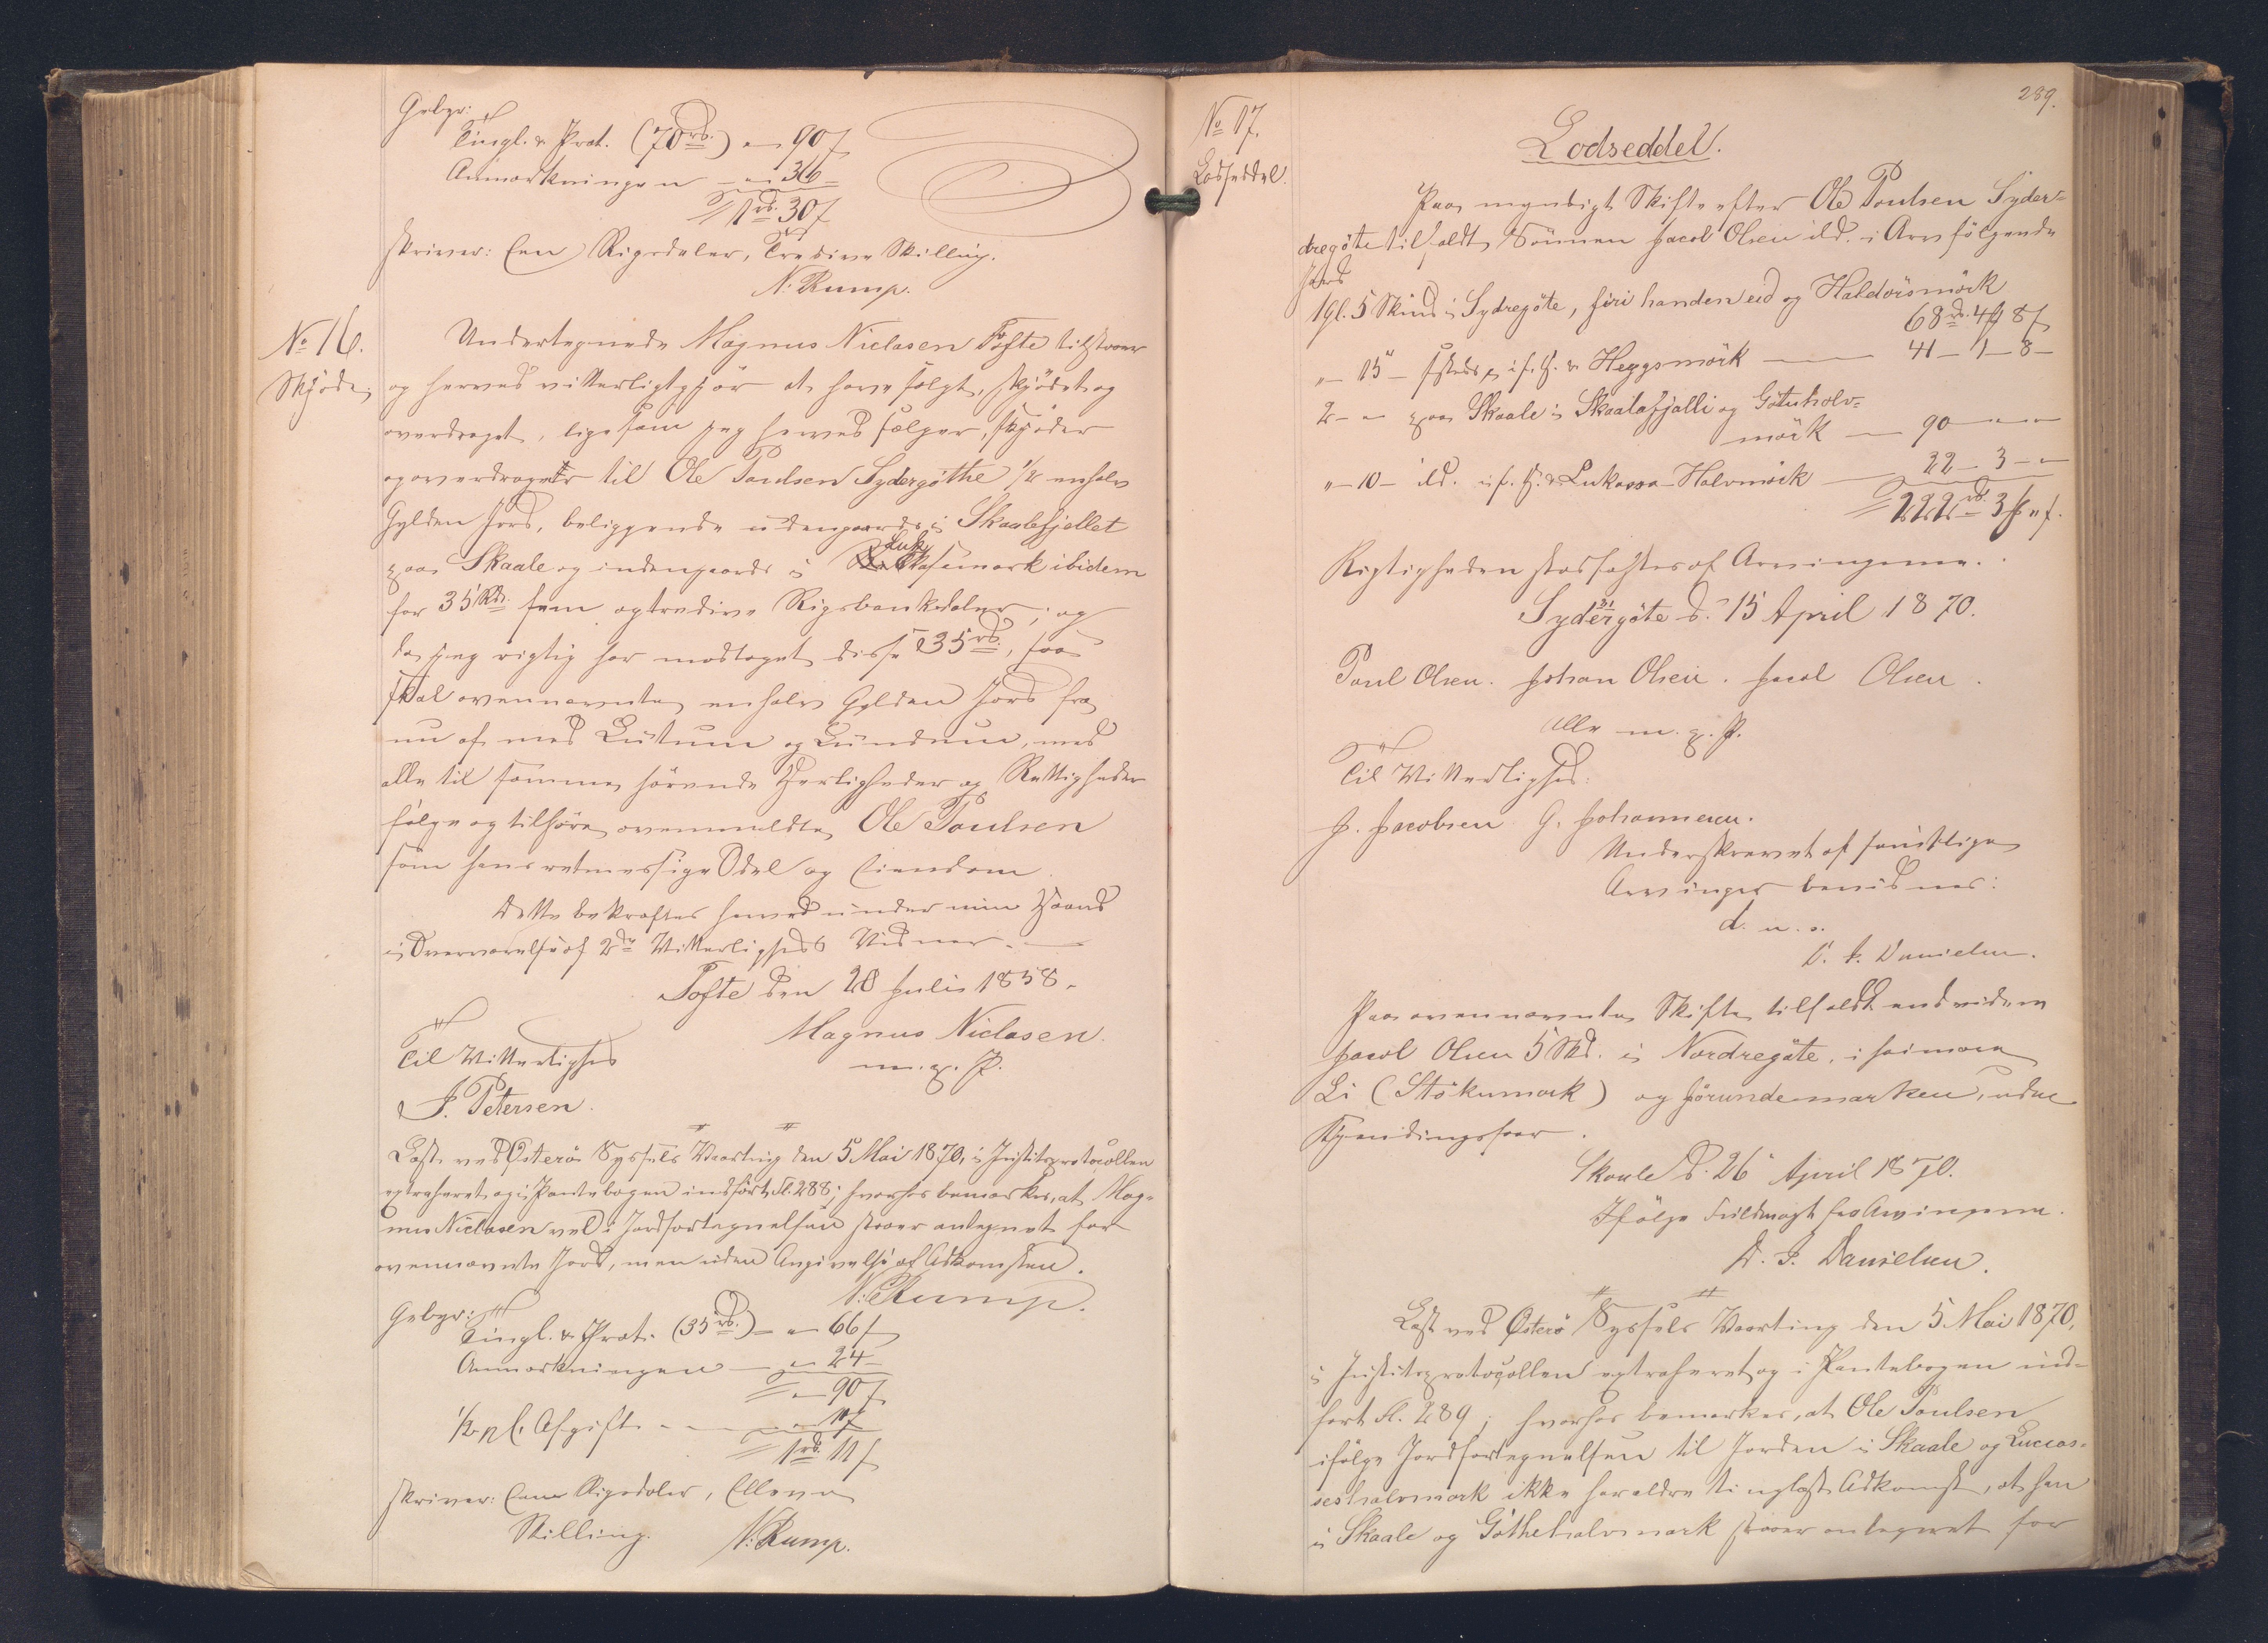 Gebyr:
Tingl. & Prot. (70 rd.) „ 90 ſ
Anmærkningen — „ 36 –
1 rd. 30 ſ
skriver: Een Rigsdaler, Tredive Skilling.
N. Rump.
No 16.
Skjøde.
Undertegnede Magnus Niclasen Tofte tilstaaer
og herved vitterligtgjör at have solgt, skjödet og
overdraget, ligesom jeg herved sælger, skjöder
og overdrager til Ole Poulsen Sydergöthe 1/2 en halv
Gylden Jord, beliggende udengaards i Skaalefjellet
paa Skaale og indengaards i Lukasemark ibidem
for 35 Rd. fem og tredive Rigsbankdaler; og
da jeg rigtig har modtaget disse 35 rd., saa
skal ovennævnte en halv Gylden Jord fra
nu af med Lutum og Lundum, med
alle til samme hörende Herligheder og Rettigheder
fölge og tilhöre ovenmeldte Ole Poulsen
som hans retmessige Odel og Eiendom.
Dette bekræftes herved under min Haand
i Overværelse af 2de Vitterligheds Vidner. —
Tofte den 20 Juli 1858.
Magnus Niclasen.
m. p. P.
Til Vitterlighed
J. Petersen.
Læst ved Österö Syssels Vaarting den 5 Mai 1870, i Justitsprotocollen
extraheret og i Pantebogen indfört Fl. 288; hvorhos bemærkes, at Mag-
nus Niclasen vel i Jordfortegnelsen staaer antegnet for
ovennævnte Jord, men uden Angivelse af Adkomsten.
N. Rump.
Gebyr:
Tingl. & Prot. (35 rd.) – „ 66 ſ
Anmærkningen — „ 24 –
„ 90 ſ
1/2 p C. Afgift — „ 17
1 rd. 11 ſ
skriver: Een Rigsdaler, Elleve
Skilling. N. Rump.
289.
No 17.
Lodseddel.
Lodseddel.
Paa myndigt Skifte efter Ole Poulsen Syder-
dregöte tilfaldt Sönnen Jacob Olsen ibd. i Arv fölgende
Jord
1 gl. 5 Skind i Sydregöte, firi handen eid og Haldorsmörk
68 rd. 4 ₰ 8 ſ
„ – 15 – sstds. i f. H. & Heygsmörk — 41 – 1 – 8 –
2 – „ paa Skaale i Skaalafjalli og Götuholv-
mörk — 90 – „ – „
„ – 10 – ibd. i f. H. & Lukassa-Halvmörk — 22 – 3 – „
222 rd. 3 ₰ „ ſ.
Rigtigheden stadfæstes af Arvingerne.
Sydergöte d. 15 April 1870.
Poul Olsen. Johan Olsen. Jacob Olsen.
Alle m. p. P.
Til Vitterlighed:
J. Jacobsen G. Johannesen.
Underskrevet af samtlige
Arvinger bevidnes:
d. u. s.
D. J. Danielsen.
Paa ovennævnte Skifte tilfaldt endvidere
Jacob Olsen 5 Skd. i Nordregöte, i heimara
Li (Stökumørk) og Jörundemarken, uden
Kjendingsfaar.
Skaale d. 26 April 1870.
Ifölge Fuldmagt fra Arvingerne.
D. J. Danielsen.
Læst ved Österö Syssels Vaarting den 5 Mai 1870,
i Justitsprotocollen extraheret og i Pantebogen ind-
fört Fl. 289; hvorhos bemærkes, at Ole Poulsen
ifölge Jordfortegnelsen til Jorden i Skaale og Luccas-
ses halvmark ikke har ældre tinglæst Adkomst, at han
i Skaale og Göthehalvmark staaer antegnet for